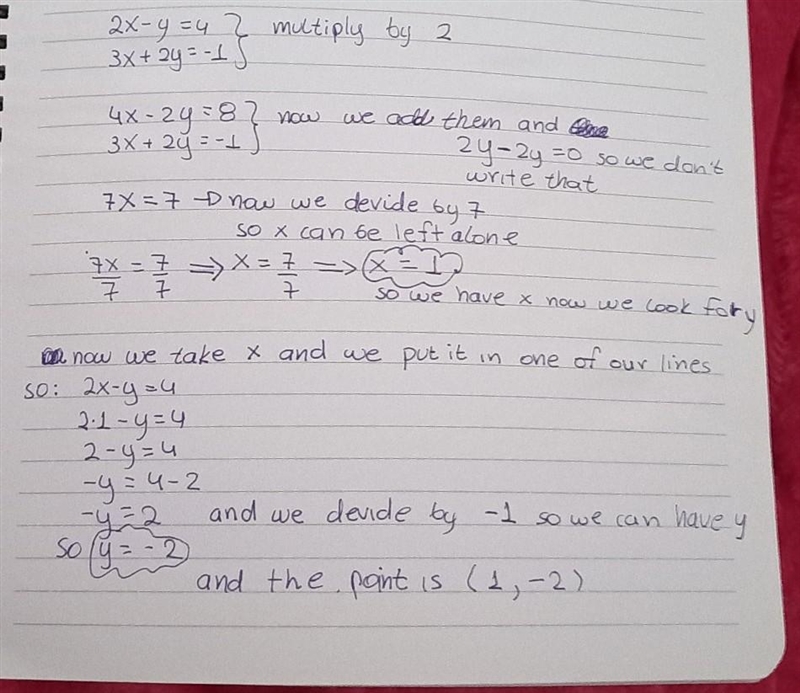 2x-y=4 } multiply by 2
3x+2y=-1
4x-2y=8 } now we add them and
3x+2y=-1 2y-2y=0 so we don't
write that
7x=7 → now we devide by 7
so x can be left alone
7x/7 = 7/7 ⟹ x = 7/7 ⟹ x = 1
so we have x now we look for y
now we take x and we put it in one of our lines
so: 2x-y=4
2·1-y=4
2-y=4
-y=4-2
-y=2 and we devide by -1 so we can have y
so y=-2
and the point is (1,-2)